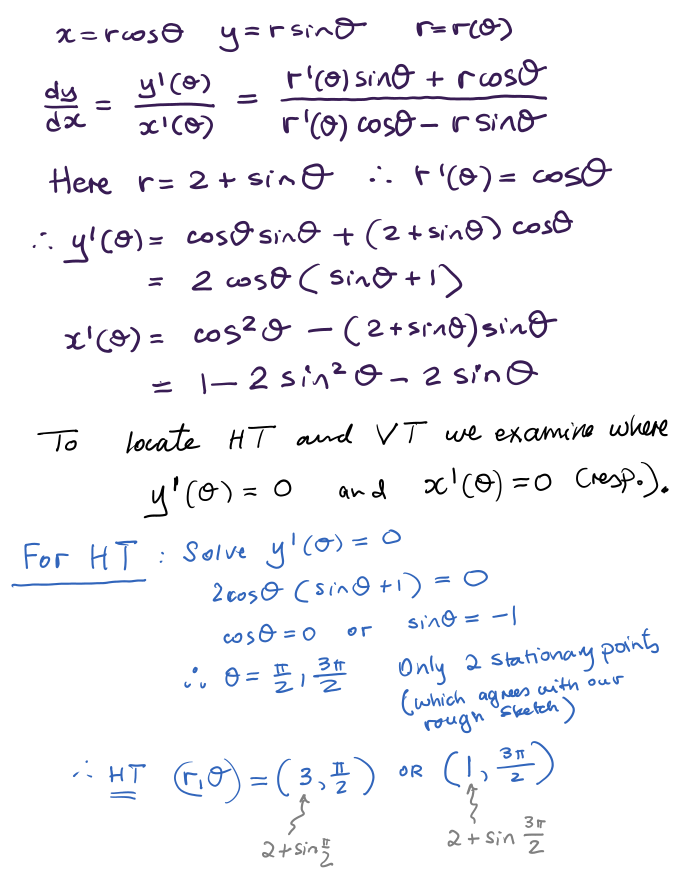 x = r cosθ   y = r sinθ   r = r(θ)
dy/dx = y'(θ)/x'(θ) = (r'(θ) sinθ + r cosθ)/(r'(θ) cosθ − r sinθ)
Here r = 2 + sinθ ∴ r'(θ) = cosθ
∴ y'(θ) = cosθ sinθ + (2 + sinθ) cosθ
= 2 cosθ (sinθ + 1)
x'(θ) = cos²θ − (2 + sinθ) sinθ
= 1 − 2 sin²θ − 2 sinθ
To locate HT and VT we examine where
y'(θ) = 0 and x'(θ) = 0 (resp.).
For HT : Solve y'(θ) = 0
2cosθ (sinθ + 1) = 0
cosθ = 0 or sinθ = −1
∴ θ = π/2, 3π/2   Only 2 stationary points
(which agrees with our
rough sketch)
∴ HT (r, θ) = (3, π/2) OR (1, 3π/2)
2 + sin π/2   2 + sin 3π/2